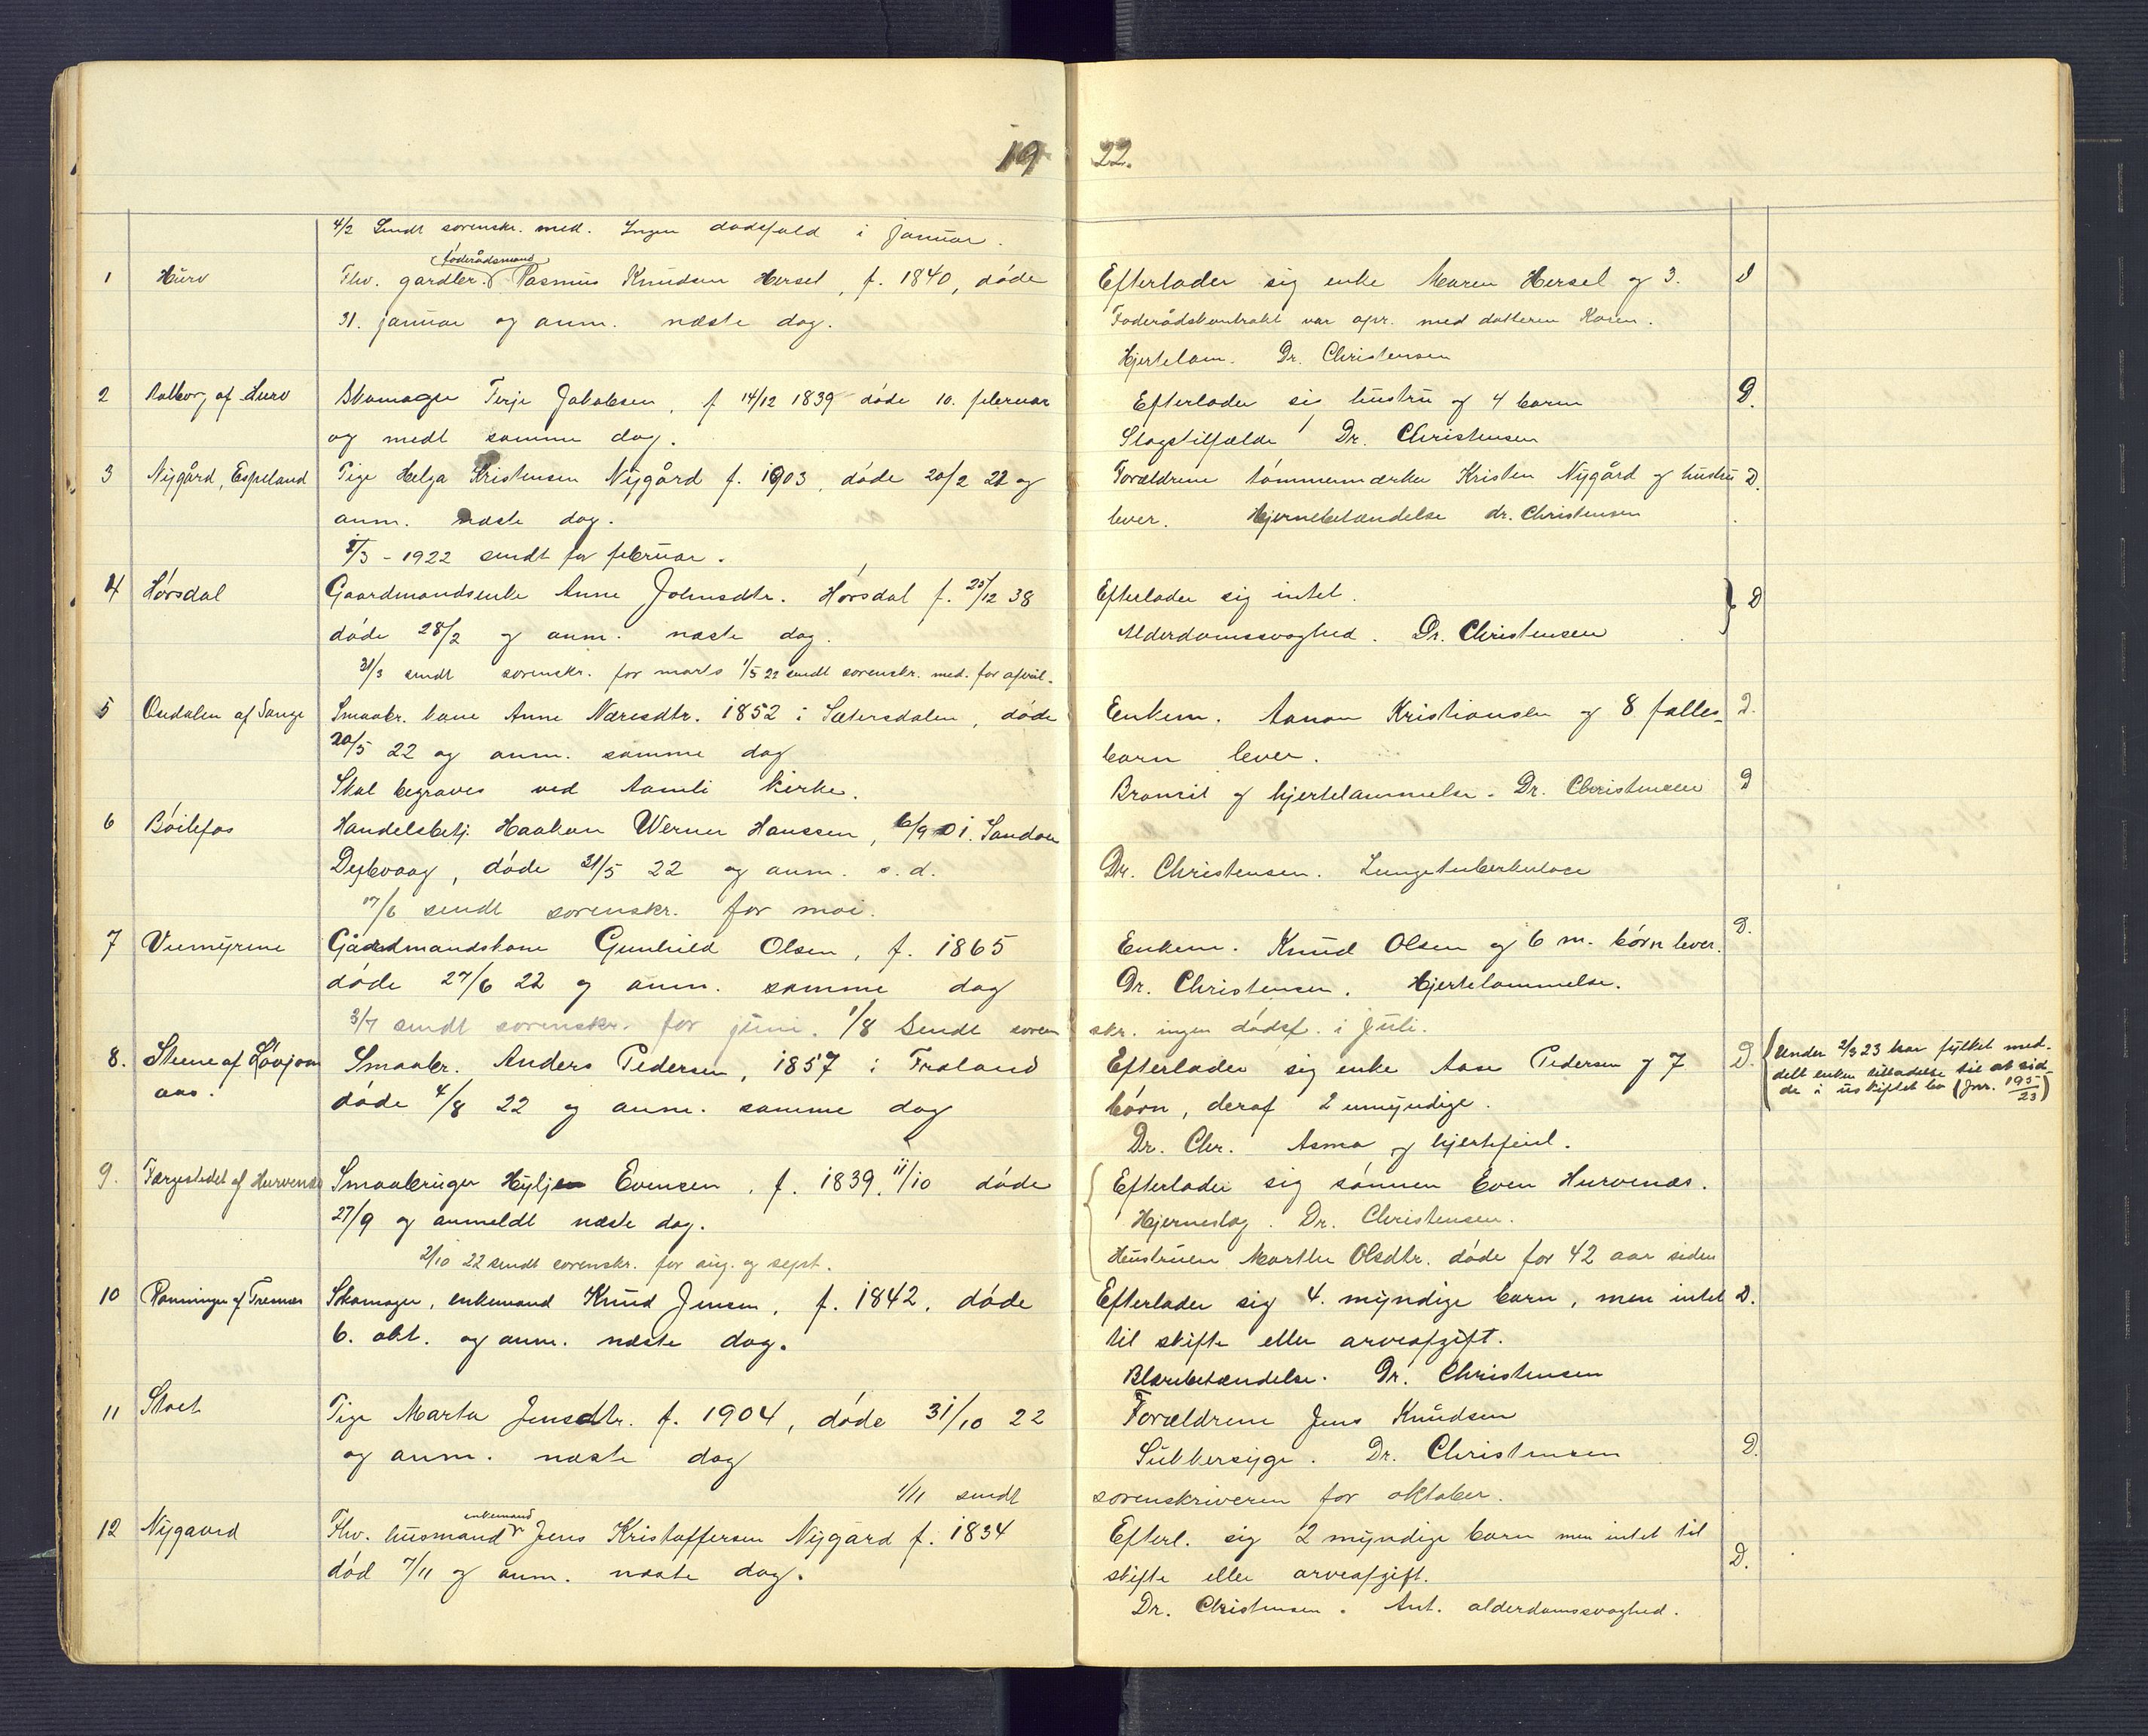 19 22.
4/2 Sendt sorenskr. med. Ingen dødsfald i januar.
føderådsmand
1 Hurv Fhv. gardbr. Rasmus Knudsen Hersel, f. 1840, døde
31. januar og anm. næste dag.
Efterlader sig enke Maren Hersel og 3. D
Føderådskontrakt var opr. med datteren Karen.
Hjertelam. Dr. Christensen
2 af Hurv Skomager Terje Jakobsen, f 14/12 1839 døde 10. februar
og medt samme dag.
Efterlader sig hustru og 4 barn D.
Slagstilfælde Dr. Christensen
3 Nygård, Espeland Pige Helga Kristensen Nygård f. 1903, døde 20/2 22 og
anm. næste dag.
/3 - 1922 sendt for februar.
Forældrene tømmermærker Kristen Nygård og hustru D.
lever. Hjernebetændelse dr. Christensen
4 Hørsdal Gaardmandsenke Anne Johnsdtr. Hørsdal f. 25/12 38
døde 28/2 og anm. næste dag.
31/3 sendt sorenskr. for marts 1/5 22 sendt sorenskr. med. for april.
Efterlader sig intet. D
Alderdomssvaghed. Dr. Christensen
5 af Sange Smaabr. kone Anne Næresdtr. 1852 i Sætersdalen, døde
20/5 22 og anm. samme dag
Skal begraves ved Aamli kirke.
Enkem. Aanon Kristiansen og 8 fælles- D.
barn lever.
Bronsit og hjertelammelse. Dr. Christensen D
6 Bøilefos Handelsbetj. Haakon Werner Hanssen, 6/9 01. Sandøen
Dybvaag, døde 31/5 22 og anm. s. d.
17/6 sendt sorenskr. for mai.
Dr. Christensen. Lungetuberkulose
7 Viemyrene Gårdmandskone Gunhild Olsen, f. 1865
døde 27/6 22 og anm. samme dag
3/7 sendt sorenskr. for juni. 1/8 Sendt soren
Enkem. Knud Olsen og 6 m. børn lever. D.
Dr. Christensen. Hjertelammelse.
skr. ingen dødsf. i Juli.
8. Steene af Løvjom
aas. Smaabr. Anders Pedersen, 1857 i Froland
døde 4/8 22 og anm. samme dag
Efterlader sig enke Aase Pedersen og 7 D.
børn, deraf 2 umyndige.
Dr. Chr. Asma og hjertefeil.
Under 2/3 23 har fylket med-
delt enken tilladelse til at sid-
de i uskiftet bo (jnr. 195/23)
9. Færgestedet af Hurvenes Smaabruger Hylje Evensen, f. 1839. 11/10 døde
27/9 og anmeldt næste dag.
2/10 22 sendt sorenskr. for aug. og sept.
Efterlader sig sønnen Even Hurvenæs.
Hjerneslag. Dr. Christensen.
Hustruen Marthe Olsdtr. døde for 42 aar siden
10 af Tremæs Skomager, enkemand Knud Jensen, f. 1842, døde
6. okt. og anm. næste dag.
Efterlader sig 4. myndige barn, men intet D.
til skifte eller arveafgift.
Blærebetændelse. Dr. Christensen
11 Stoet Pige Marta Jensdtr. f. 1904, døde 31/10 22
og anm. næste dag
1/11 sendt
Forældrene Jens Knudsen
Sukkersyge. Dr. Christensen D.
sorenskriveren for oktober.
enkemand
12 Nygaard Fhv. husmand Jens Kristoffersen Nygård f. 1834
død 7/11 og anm. næste dag.
Efterl. sig 2 myndige barn men intet til
skifte eller arveafgift. D.
Dr. Christensen. Ant. alderdomssvaghed.